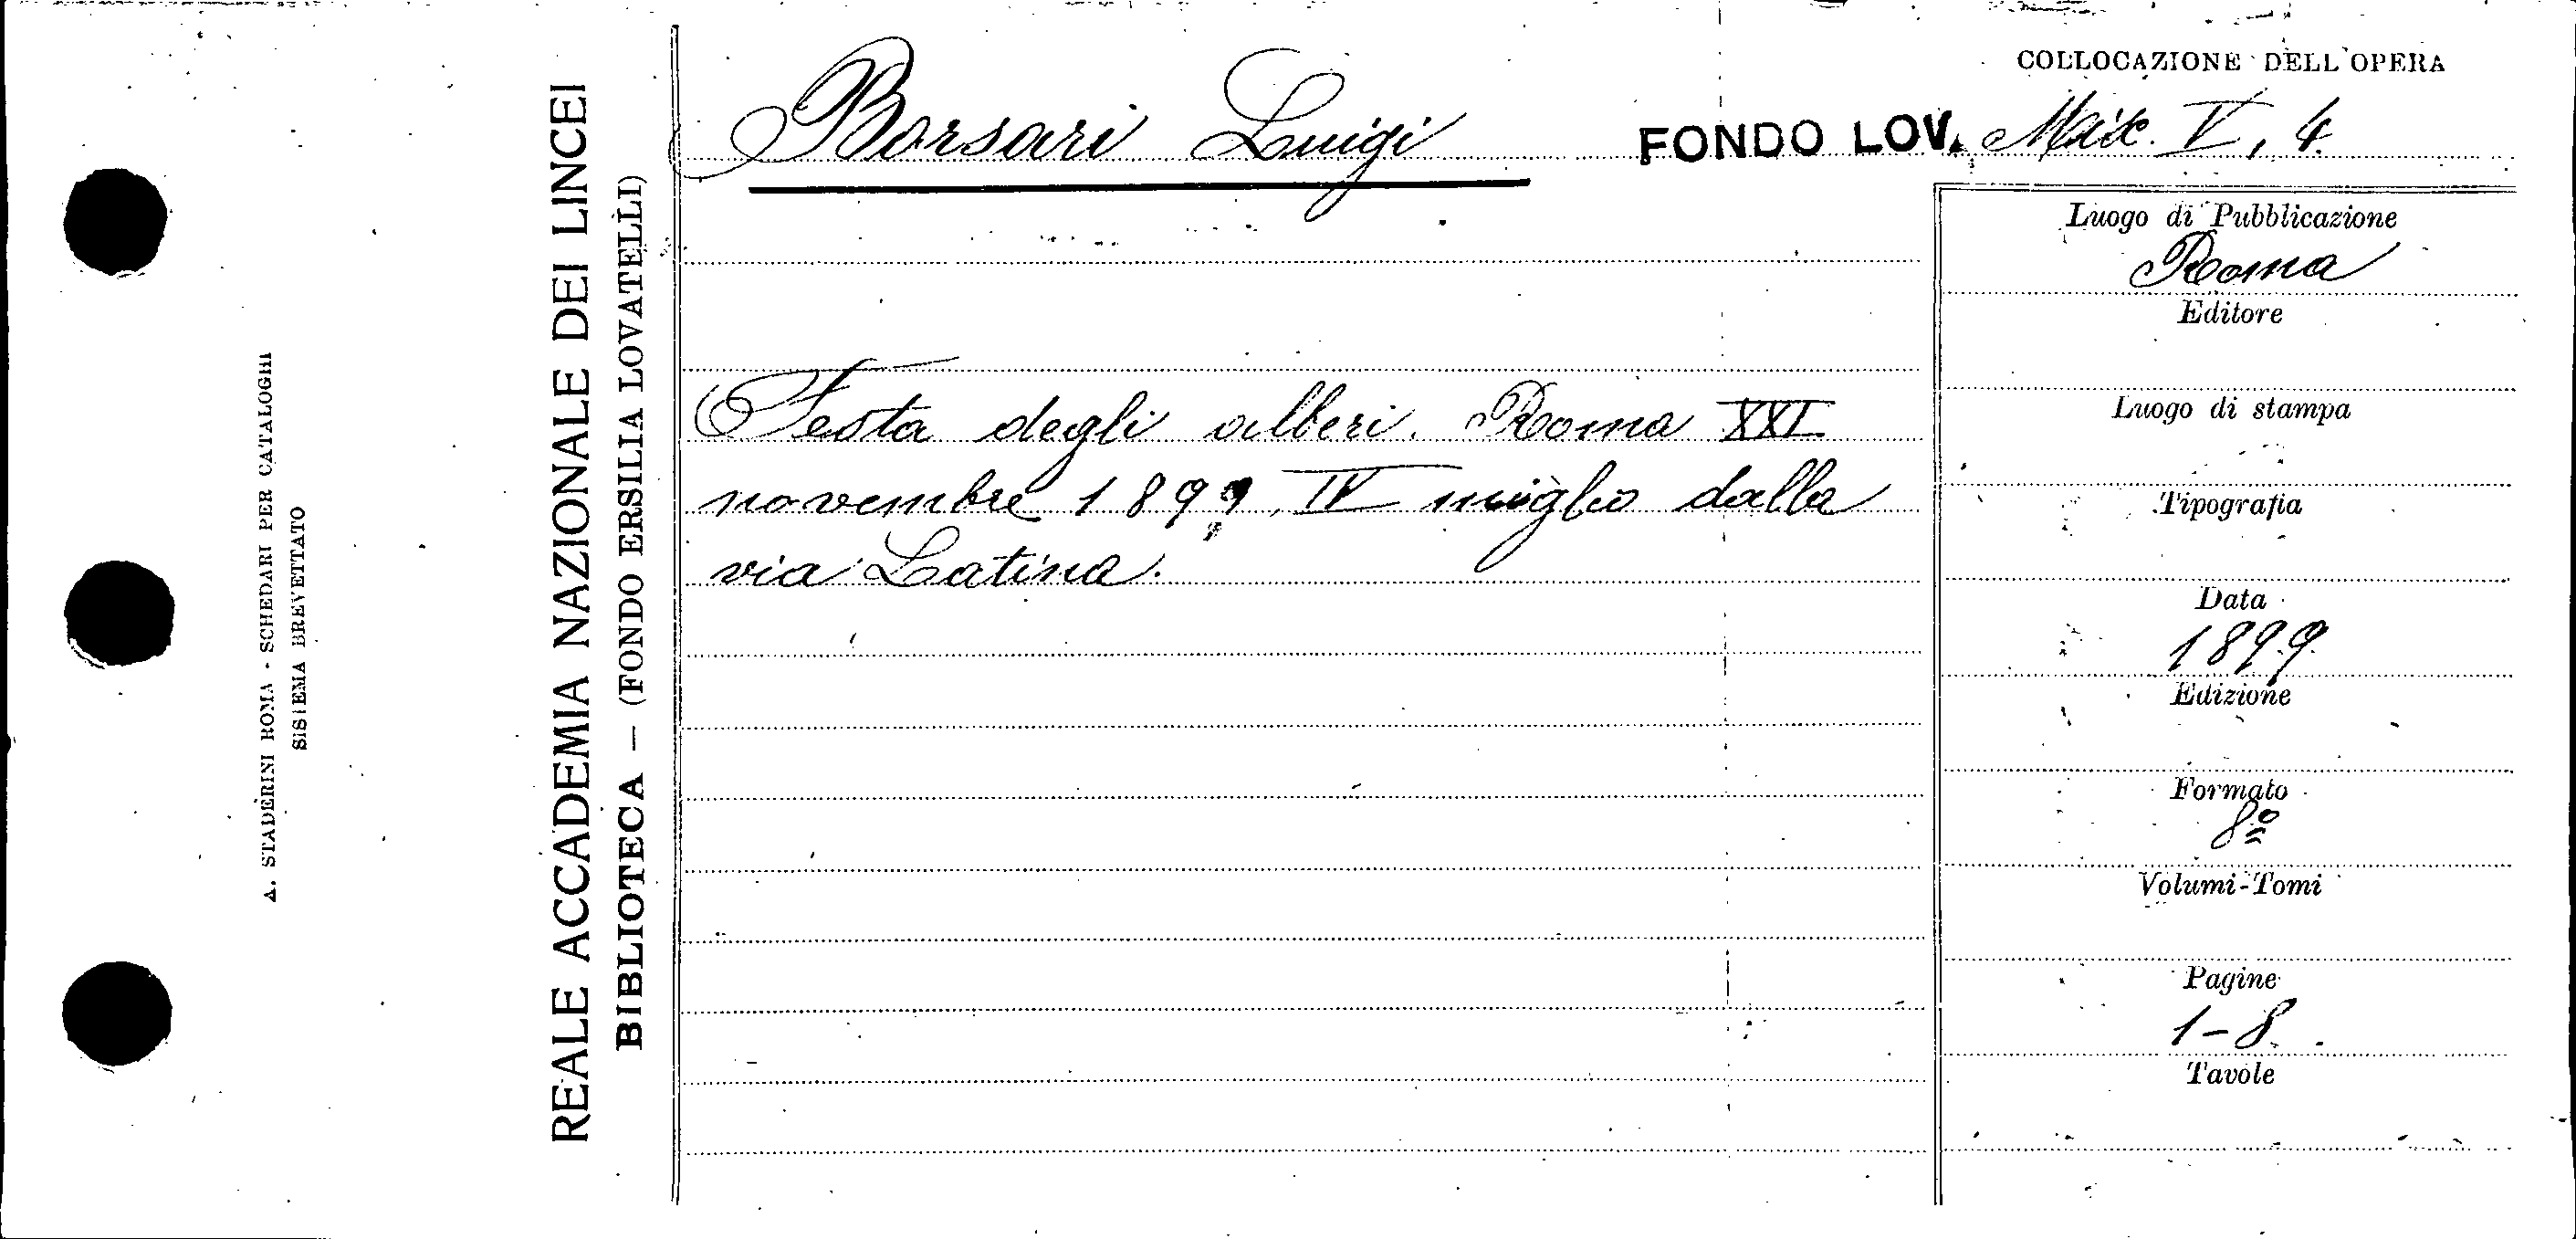 COLLOCAZIONE DELL'OPERA
Borsari Luigi
FONDO LOV. V, 4.
Festa degli alberi. Roma XXI
novembre 1899. IV miglio dalla
via Latina.
Luogo di Pubblicazione
Roma
Editore
Luogo di stampa
Tipografia
Data
1899
Edizione
Formato
8º
Volumi-Tomi
Pagine
1-8.
Tavole
REALE ACCADEMIA NAZIONALE DEI LINCEI
BIBLIOTECA — (FONDO ERSILIA LOVATELLI)
A. STADERINI ROMA - SCHEDARI PER CATALOGHI
SISTEMA BREVETTATO